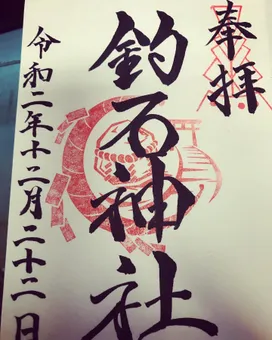 奉拝
釣石神社
令和二年十二月二十二日